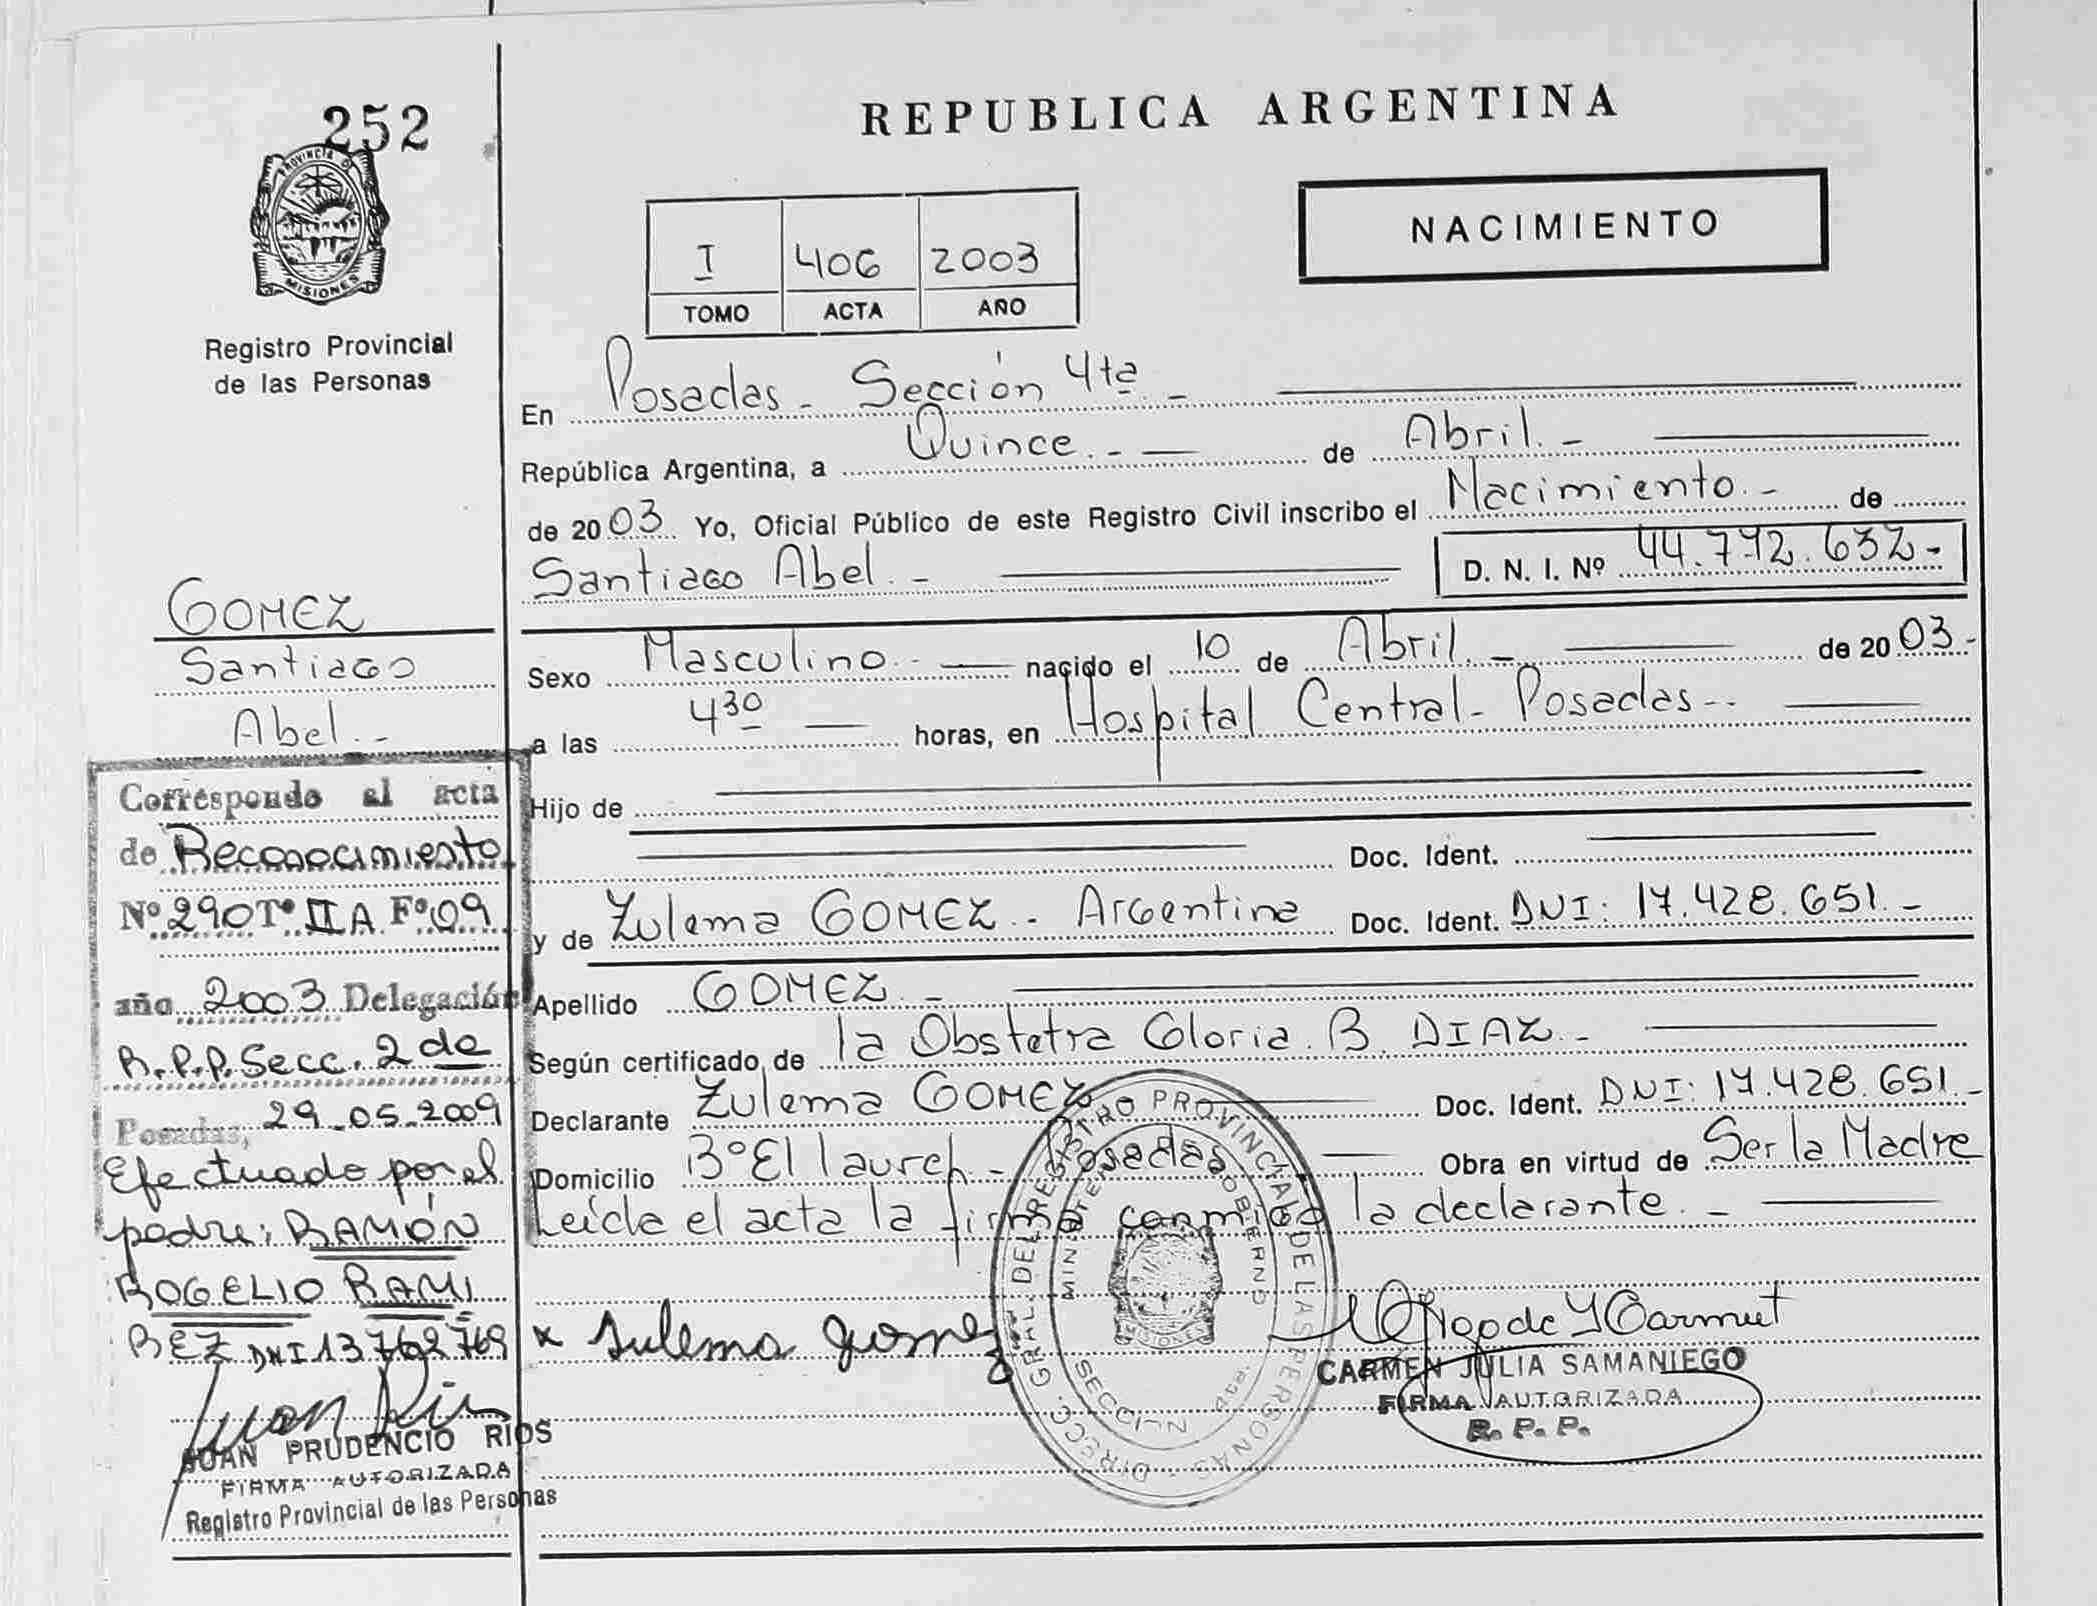 252
PROVINCIA DE
MISIONES
Registro Provincial
de las Personas
REPUBLICA ARGENTINA
NACIMIENTO
I 406 2003
TOMO ACTA AÑO
En Posadas - Sección 4ta. -
República Argentina, a Quince. - de Abril. -
de 2003. Yo, Oficial Público de este Registro Civil inscribo el Nacimiento. - de
Santiago Abel. - D. N. I. Nº 44.772.632-
Sexo Masculino. - nacido el 10 de Abril. - de 2003.-
a las 4 30 horas, en Hospital Central - Posadas. -
Hijo de
Doc. Ident.
y de Zulema GOMEZ. - Argentina Doc. Ident. DNI: 17.428.651. -
Apellido GOMEZ. -
Según certificado de la Obstetra Gloria. B. DIAZ. -
Declarante Zulema GOMEZ Doc. Ident. DNI: 17.428.651. -
Domicilio Bº El laurel - Posadas Obra en virtud de Ser la Madre
Leída el acta la firma conmigo la declarante. -
x Sulema gomez
CARMEN JULIA SAMANIEGO
FIRMA AUTORIZADA
R. P. P.
DIRECC. GRAL. DEL REGISTRO PROVINCIAL DE LAS PERSONAS
MINISTERIO GOBIERNO
MISIONES
SECCION
GOMEZ
Santiago
Abel. -
Corresponde al acta
de Reconocimiento
Nº 290 Tº II A Fº 09
año 2003 Delegación
R.P.P. Secc. 2 da
Posadas, 29-05-2009
Efectuado por el
padre: RAMÓN
ROGELIO RAMI
REZ DNI 13762769
JUAN PRUDENCIO RIOS
FIRMA AUTORIZADA
Registro Provincial de las Personas